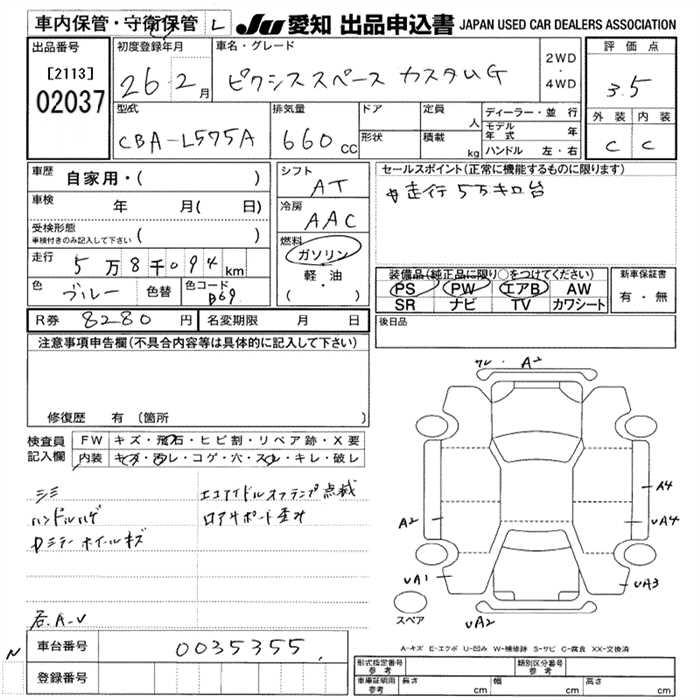 車内保管・守衛保管 L
JU 愛知 出品申込書 JAPAN USED CAR DEALERS ASSOCIATION
出品番号
[2113]
02037
初度登録年月
26.2月
車名・グレード
ピクシススペース カスタムG
2WD
・
4WD
評価点
3.5
外装 内装
C C
型式
CBA-L575A
排気量
660cc
ドア
形状
定員
人
積載
kg
ディーラー・並行
モデル年式 年
ハンドル 左・右
車歴 自家用・( )
車検 年 月( 日)
受検形態
車検付きのみ記入して下さい ( )
走行 5万8千094km
色 ブルー 色替 色コード B69
シフト
AT
冷房
AAC
燃料
ガソリン
・
軽・油
( )
セールスポイント(正常に機能するものに限ります)
走行5万キロ台
装備品(純正品に限り○をつけてください)
PS PW エアB AW
SR ナビ TV カワシート
新車保証書
有・無
R券 8280円 名変期限 月 日
後日品
注意事項申告欄(不具合内容等は具体的に記入して下さい)
修復歴 有 (箇所 )
検査員記入欄
FW キズ・飛石・ヒビ割・リペア跡・X要
内装 キズ・汚レ・コゲ・穴・スレ・キレ・破レ
シミ エコアイドルオフランプ点滅
ハンドルハゲ
右A-U
A2
A2
A4
UA4
UA1
UA3
UA2
スペア
A-キズ E-エクボ U-凹み W-補修跡 S-サビ C-腐食 XX-交換済
N
車台番号 0035355
登録番号
形式指定番号 参考
類別区分番号 参考
車庫証明用 参考 長さ cm 幅 cm 高さ cm